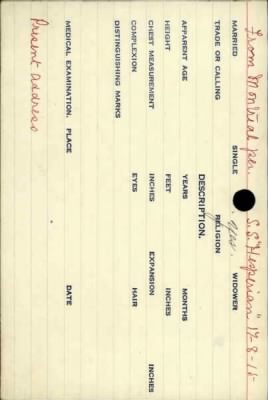 From Montreal per. S.S. "Hesperian" 17-8-15-
MARRIED SINGLE WIDOWER
TRADE OR CALLING RELIGION
DESCRIPTION.
APPARENT AGE YEARS MONTHS
HEIGHT FEET INCHES
CHEST MEASUREMENT INCHES EXPANSION INCHES
COMPLEXION EYES HAIR
DISTINGUISHING MARKS
MEDICAL EXAMINATION. PLACE DATE
Present address